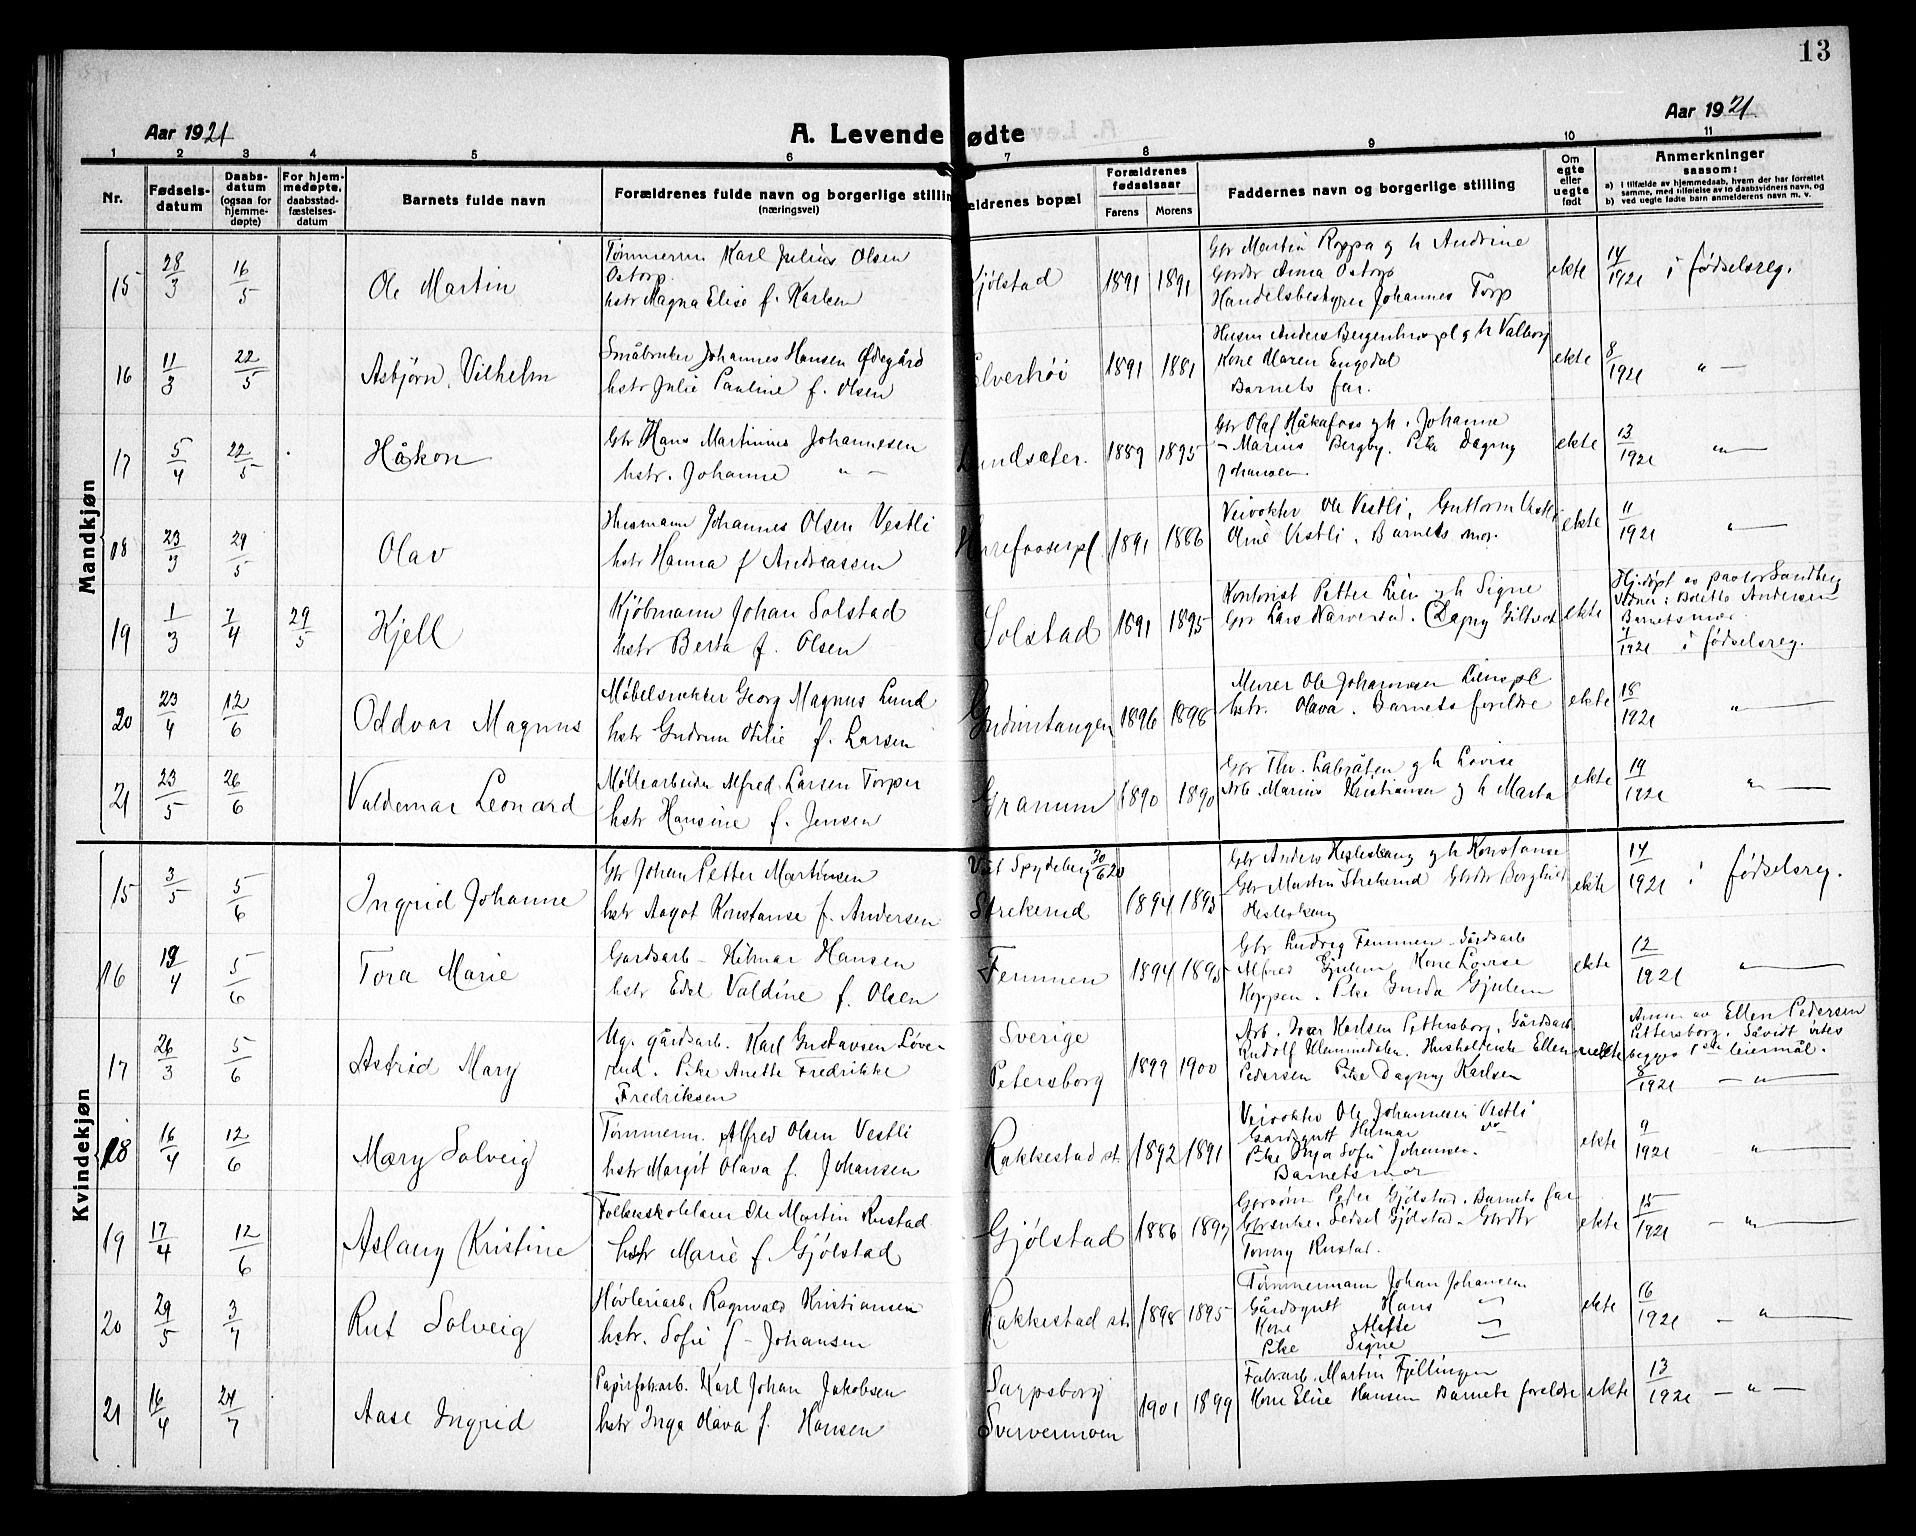 13
Aar 1921
A. Levendefødte
Aar 1921
1 2 3 4 5 6 7 8 9 10 11
Nr.
Fødsels-
datum
Daabs-
datum
(ogsaa for
hjemme-
døpte)
For hjem-
medøpte,
daabsstad-
fæstelses-
datum
Barnets fulde navn
Forældrenes fulde navn og borgerlige stilling
(næringsvei)
ældrenes bopæl
Forældrenes
fødselsaar
Farens Morens
Faddernes navn og borgerlige stilling
Om
egte
eller
uegte
født
Anmerkninger
saasom:
a) i tilfælde av hjemmedaab, hvem der har forrettet
samme, med tilføielse av to daabsvidners navn, og
b) ved uegte fødte barn anmelderens navn m. v.
Mandkjøn
15 28/3 16/5 Ole Martin
Tømmerm Karl Julius Olsen
Ostorp.
hstr Magna Elise f. Karlsen
Kjølstad 1891 1891
Gbr Martin Roppa og h Andrine
Gbrdtr Anna Ostorp
Handelsbestyrer Johannes Torp
ekte 14/1921 i fødselsreg.
16 11/3 22/5 Asbjørn Vilhelm
Småbruker Johannes Hansen Ødegård
hstr Julie Pauline f. Olsen
Elverhøi 1891 1881
Husm Anders Bergenhuspl og h Valborg
Kone Maren Engedal
Barnets far.
ekte 8/1921 " —
17 5/4 22/5 Håkon
Gbr Hans Martinius Johannesen
hstr. Johanne " —
Lundsæter. 1889 1895
Gbr Olaf Håkafoss og h. Johanne
— Marius Bergby. Pike Dagny
Johansen
ekte 13/1921 "
18 23/3 29/5 Olav
Husmann Johannes Olsen Vestli
hstr Hanna f Andreassen
1891 1886
Veivokter Ole Vestli, Guttorm Vestli
Oline Vestli. Barnets mor.
ekte 11/1921 "
19 1/3 7/4 29/5 Kjell
Kjøbmann Johan Solstad
hstr Berta f. Olsen
Solstad 1891 1895
Kontorist Petter Lien og h Signe
Gbr Lars Narvestad. Dagny
ekte
Hj.døpt av pastor Sandberg
Vidner: Bolette Andersen
Barnets mor
1921 i fødselsreg.
20 23/4 12/6 Oddvar Magnus
Møbelsnekker Georg Magnus Lund
hstr Gudrun Otilie f. Larsen
Gudimtangen 1896 1898
Murer Ole Johannesen Lienspl
hstr. Olava. Barnets foreldre
ekte 18/1921 "
21 23/5 26/6 Valdemar Leonard
Møllearbeider Alfred Larsen Torper
hstr Hansine f. Jensen
Granum 1890 1890
Gbr Thr. og h Lovise
Arb Marius Kristiansen og h Marta
ekte 19/1921 "
Kvindekjøn
15 3/5 5/6 Ingrid Johanne
Gbr Johan Petter Martinsen
hstr Aagot Konstanse f. Andersen
Viet Spydeberg 30/6 20
Strekerud 1894 1895
Gbr Anders Hesleskaug og h Konstanse
Gbr Martin Strekerud Gbrdtr Borghild
Hesleskaug
ekte 14/1921 i fødselsreg.
16 19/4 5/6 Tora Marie
Gardsarb — Hilmar Hansen
hstr Edel Valdine f. Olsen
Femmen 1894 1895
Gbr Ludvig Femmen. Gårdsarb
Alfred Gjulem Kone Lovise
Koppen. Pike Gunda Gjulem
ekte 12/1921 "
17 26/3 5/6 Astrid Mary
Ug. gårdsarb. Karl Gustavsen Løve-
rud. Pike Anette Fredrikke
Fredriksen
Sverige
Petersborg 1899 1900
Arb. Ivar Karlsen Pettersborg. Gårdsarb
Rudolf Husholderske Ellen
Pedersen Pike Dagny Karlsen
uekte
Anm av Ellen Pedersen
Pettersborg. Såvidt vites
begges 1ste leiermål.
8/1921 — " —
18 16/4 12/6 Mary Solveig
Tømmerm. Alfred Olsen Vestli
hstr Margit Olava f. Johansen
Rakkestad st. 1892 1891
Veivokter Ole Johannesen Vestli
Gardsgutt Hilmar do
Pike Inga Sofie Johansen.
Barnets mor
ekte 9/1921 "
19 17/4 12/6 Aslaug Kristine
Folkeskolelærer Ole Martin Rustad
hstr Marie f. Gjølstad
Gjølstad 1886 1897
Gbrsønn Peter Gjølstad. Barnets far
Gbrenke Sedsel Gjølstad. Gbrdtr
Tonny Rustad.
ekte 15/1921 — " —
20 29/5 3/7 Rut Solveig
Høvleriarb. Ragnvald Kristiansen
hstr. Sofie f — Johansen
Rakkestad st. 1898 1895
Tømmermann Johan Johansen
Gårdsgutt Hans "
Kone Alette "
Pike Signe "
ekte 16/1921 — "
21 16/4 24/7 Aase Ingrid
Papirfabrarb. Karl Johan Jakobsen
hstr Inga Olava f. Hansen
Sarpsborg
Sververmoen 1901 1899
Fabrarb. Martin Fjellingen
Kone Elise Hansen Barnets foreldre
ekte 13/1921 — " —